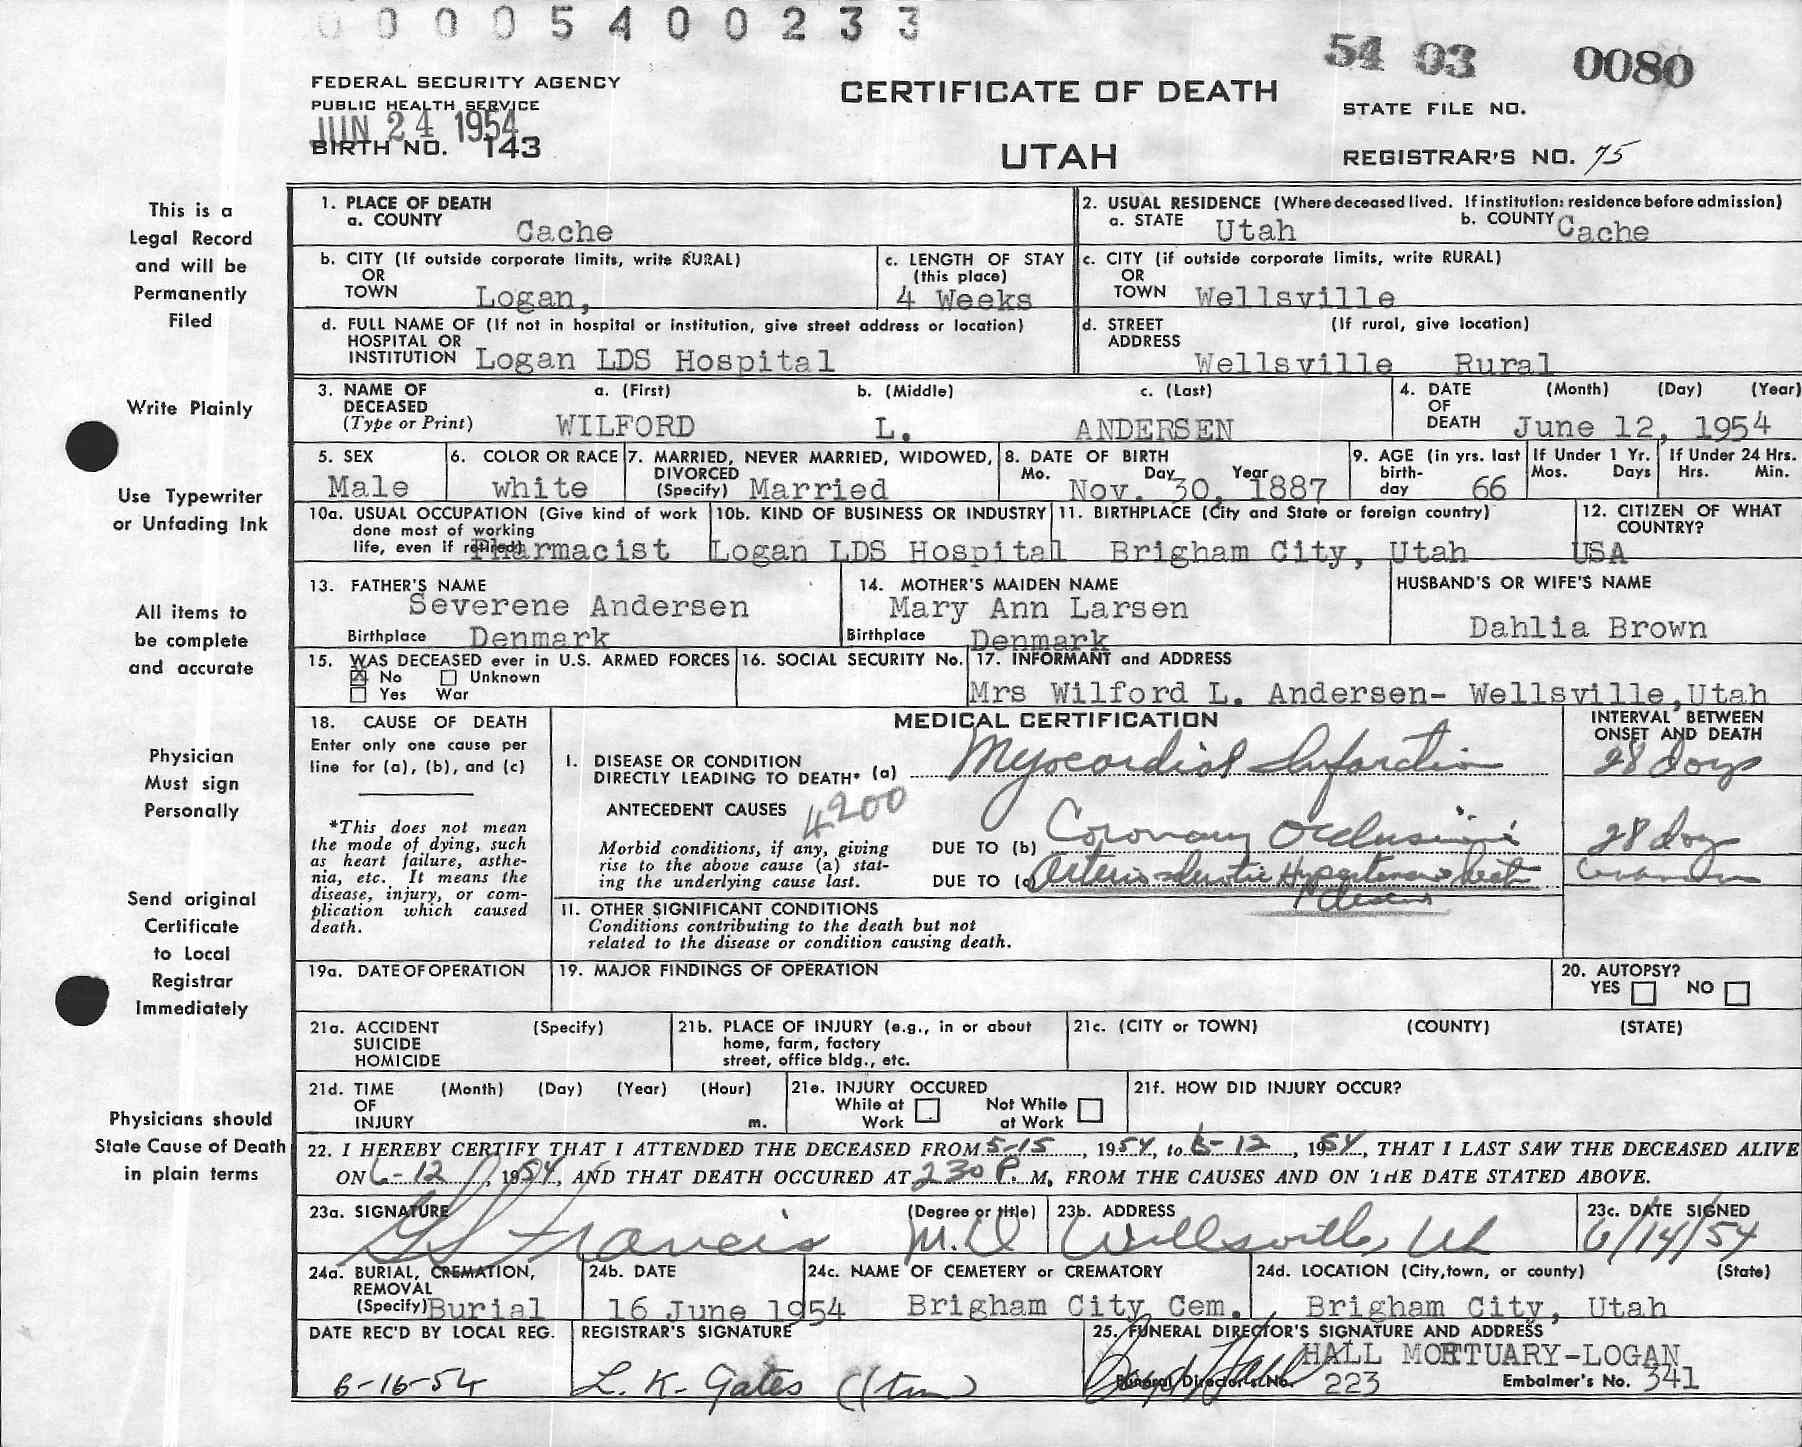 0 0 0 0 5 4 0 0 2 3 3
54 03 0080
FEDERAL SECURITY AGENCY
PUBLIC HEALTH SERVICE
JUN 24 1954
BIRTH NO. 143
CERTIFICATE OF DEATH
UTAH
STATE FILE NO.
REGISTRAR'S NO. 75
This is a
Legal Record
and will be
Permanently
Filed
Write Plainly
Use Typewriter
or Unfading Ink
All items to
be complete
and accurate
Physician
Must sign
Personally
Send original
Certificate
to Local
Registrar
Immediately
Physicians should
State Cause of Death
in plain terms
1. PLACE OF DEATH
a. COUNTY Cache
2. USUAL RESIDENCE (Where deceased lived. If institution: residence before admission)
a. STATE Utah b. COUNTY Cache
b. CITY (If outside corporate limits, write RURAL)
OR
TOWN Logan,
c. LENGTH OF STAY
(this place)
4 Weeks
c. CITY (if outside corporate limits, write RURAL)
OR
TOWN Wellsville
d. FULL NAME OF (If not in hospital or institution, give street address or location)
HOSPITAL OR
INSTITUTION Logan LDS Hospital
d. STREET (If rural, give location)
ADDRESS
Wellsville Rural
3. NAME OF a. (First) b. (Middle) c. (Last)
DECEASED
(Type or Print) WILFORD L. ANDERSEN
4. DATE (Month) (Day) (Year)
OF
DEATH June 12, 1954
5. SEX
Male
6. COLOR OR RACE
white
7. MARRIED, NEVER MARRIED, WIDOWED,
DIVORCED
(Specify) Married
8. DATE OF BIRTH
Mo. Day Year
Nov. 30, 1887
9. AGE (in yrs. last
birth-
day 66
If Under 1 Yr.
Mos. Days
If Under 24 Hrs.
Hrs. Min.
10a. USUAL OCCUPATION (Give kind of work
done most of working
life, even if retired) Pharmacist
10b. KIND OF BUSINESS OR INDUSTRY
Logan LDS Hospital
11. BIRTHPLACE (City and State or foreign country)
Brigham City, Utah
12. CITIZEN OF WHAT
COUNTRY?
USA
13. FATHER'S NAME
Severene Andersen
Birthplace Denmark
14. MOTHER'S MAIDEN NAME
Mary Ann Larsen
Birthplace Denmark
HUSBAND'S OR WIFE'S NAME
Dahlia Brown
15. WAS DECEASED ever in U.S. ARMED FORCES
☒ No ☐ Unknown
☐ Yes War
16. SOCIAL SECURITY No.
17. INFORMANT and ADDRESS
Mrs Wilford L. Andersen- Wellsville, Utah
18. CAUSE OF DEATH
Enter only one cause per
line for (a), (b), and (c)
*This does not mean
the mode of dying, such
as heart failure, asthe-
nia, etc. It means the
disease, injury, or com-
plication which caused
death.
MEDICAL CERTIFICATION
INTERVAL BETWEEN
ONSET AND DEATH
I. DISEASE OR CONDITION
DIRECTLY LEADING TO DEATH* (a) Myocardial Infarction 28 days
ANTECEDENT CAUSES 4200
Morbid conditions, if any, giving
rise to the above cause (a) stat-
ing the underlying cause last.
DUE TO (b) Coronary Occlusion 28 days
DUE TO (c) Arteriosclerotic Hypertensive heart
Disease
II. OTHER SIGNIFICANT CONDITIONS
Conditions contributing to the death but not
related to the disease or condition causing death.
19a. DATE OF OPERATION
19. MAJOR FINDINGS OF OPERATION
20. AUTOPSY?
YES ☐ NO ☐
21a. ACCIDENT (Specify)
SUICIDE
HOMICIDE
21b. PLACE OF INJURY (e.g., in or about
home, farm, factory
street, office bldg., etc.
21c. (CITY or TOWN) (COUNTY) (STATE)
21d. TIME (Month) (Day) (Year) (Hour)
OF
INJURY m.
21e. INJURY OCCURED
While at Work ☐ Not While at Work ☐
21f. HOW DID INJURY OCCUR?
22. I HEREBY CERTIFY THAT I ATTENDED THE DECEASED FROM 5-15, 1954, to 6-12, 1954, THAT I LAST SAW THE DECEASED ALIVE
ON 6-12, 1954, AND THAT DEATH OCCURED AT 2 30 P. M, FROM THE CAUSES AND ON THE DATE STATED ABOVE.
23a. SIGNATURE (Degree or title)
G S Francis M.D
23b. ADDRESS
Wellsville, Ut
23c. DATE SIGNED
6/14/54
24a. BURIAL, CREMATION,
REMOVAL
(Specify) Burial
24b. DATE
16 June 1954
24c. NAME OF CEMETERY or CREMATORY
Brigham City Cem.,
24d. LOCATION (City, town, or county) (State)
Brigham City, Utah
DATE REC'D BY LOCAL REG.
6-16-54
REGISTRAR'S SIGNATURE
L. K. Gates
25. FUNERAL DIRECTOR'S SIGNATURE AND ADDRESS
Boyd Hall HALL MORTUARY-LOGAN
Funeral Director's No. 223 Embalmer's No. 341